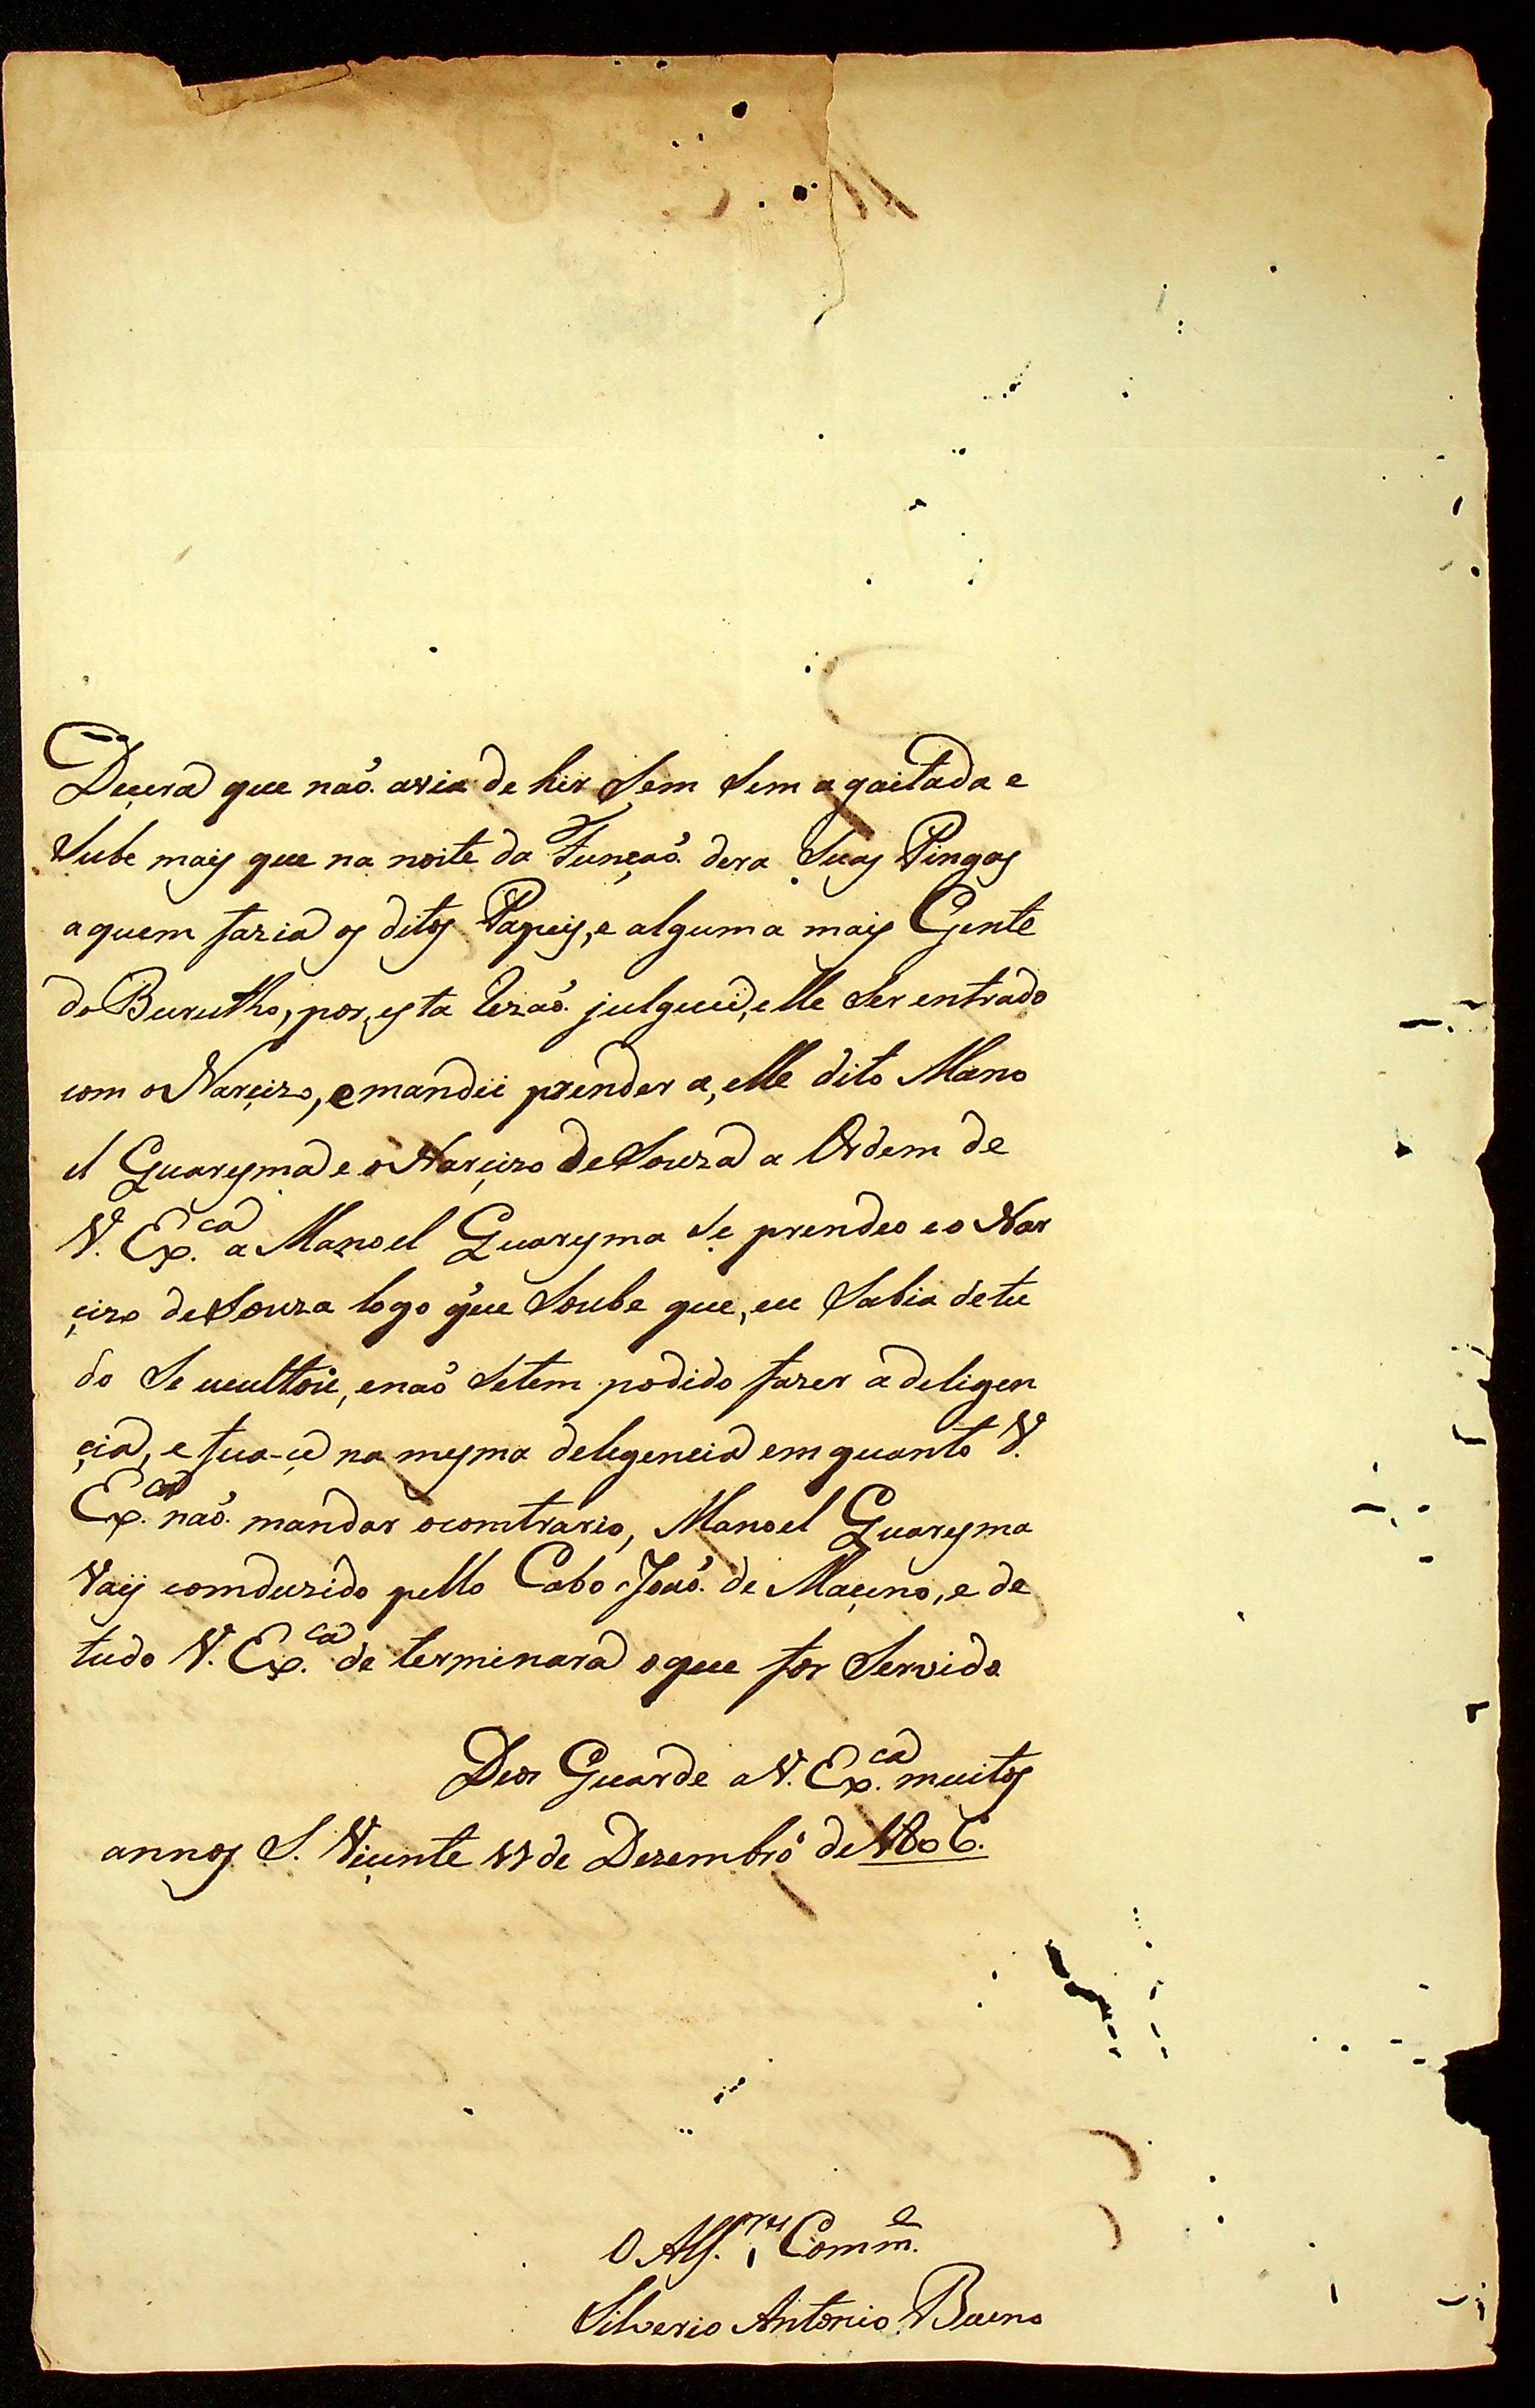 Deçera que naõ. avia de hir Sem Sem a gaitada e
Sube mais que na noite da Funçaõ. dera Suas Pingas
aquem faria os ditos Papeis, e alguma mais Gente
do Burutho, por, esta Rezaõ. julgueii, elle Ser entrado
com o Narçizo, e mandii prender a, elle dito Mano
el Guaresma e o Narçizo de Souza a Ordem de
V. Ex.ca a Manoel Guaresma Se prendeo e o Nar
çizo de Souza logo que Soube que, eu Sabia de tu
do Se ucultou, enaõ Setem podido fazer a deligen
çia, e fica-çe na mesma delegencia em quanto V.
Ex.ca naõ. mandar ocomtrario, Manoel Guaresma
Vaij comduzido pello Cabo Joaõ. de Maçeno, e de
tudo V. Ex.ca de terminara oque for Servido
Deos Guarde a V. Ex.ca muitos
annos S. Viçente 11 de Dezembro de 1806.
O Alf.res Comm.e
Silverio Antonio Bueno